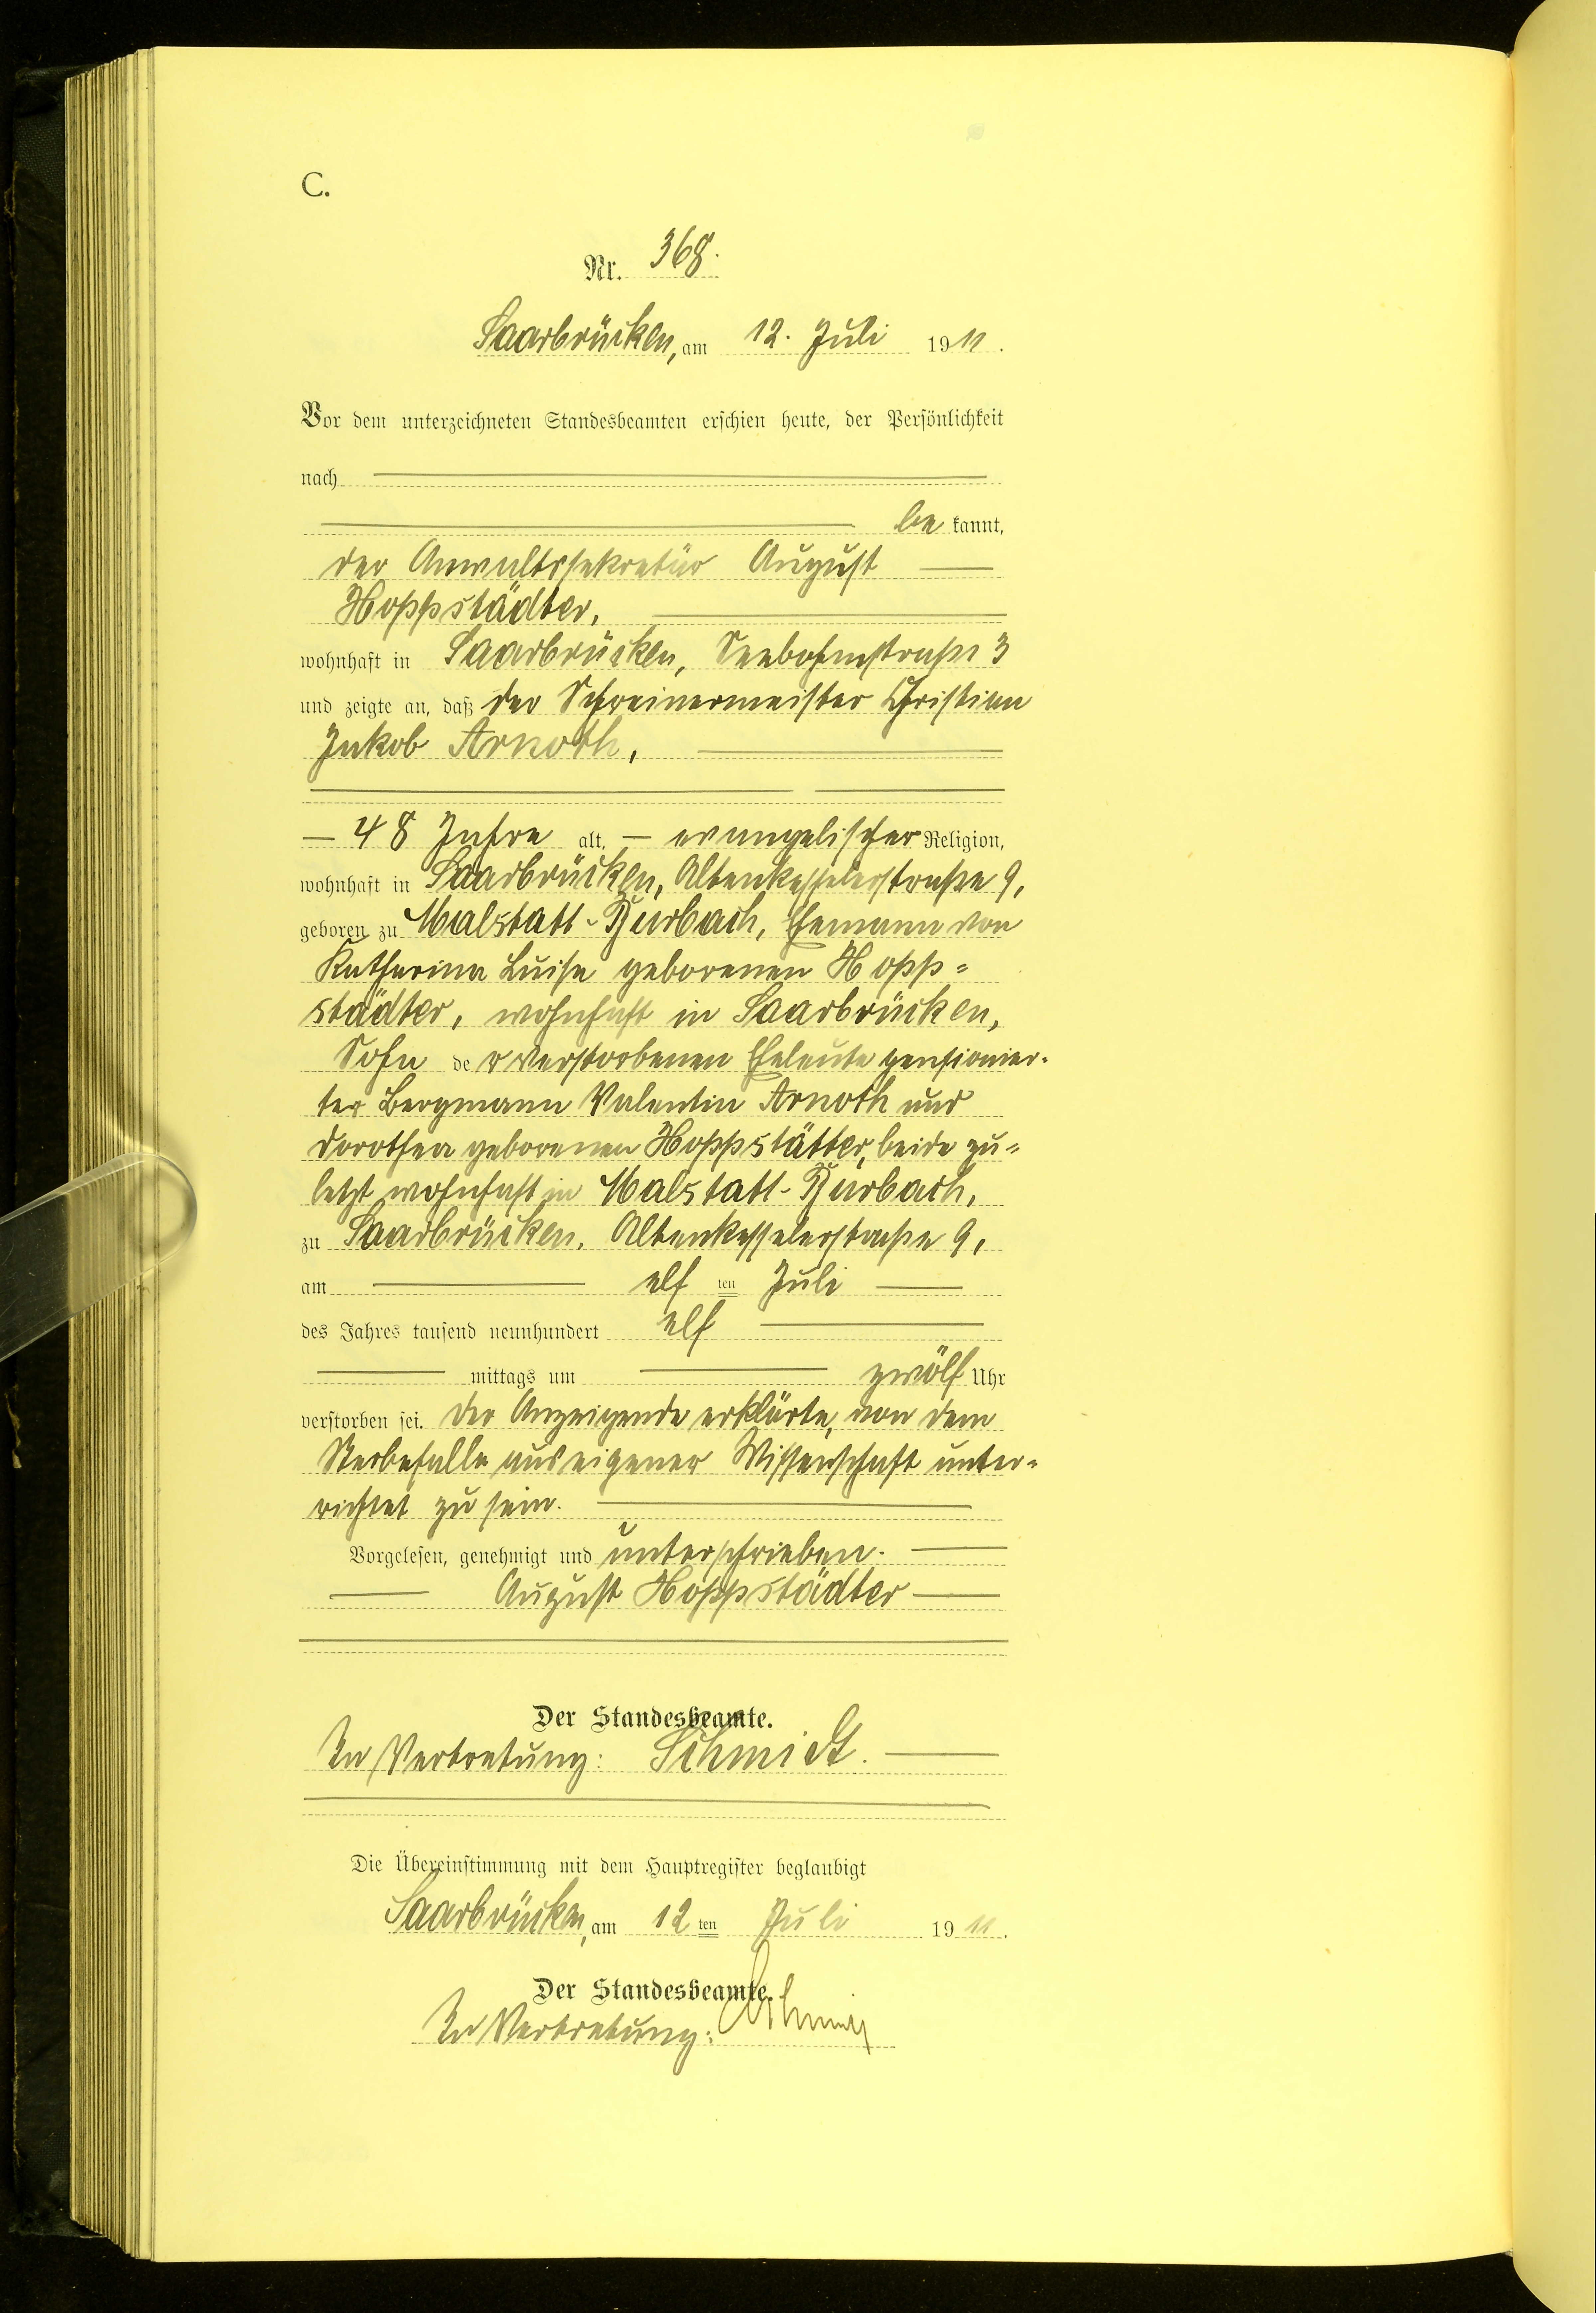 C.
Nr. 368.
Saarbrücken, am 12. Juli 1911.
Vor dem unterzeichneten Standesbeamten erschien heute, der Persönlichkeit
nach
be kannt,
der Anwaltssekretär August
Hoppstädter,
wohnhaft in Saarbrücken, Seebohmstraße 3
und zeigte an, daß der Schreinermeister Christian
Jakob Arnoth,
48 Jahre alt, evangelischer Religion,
wohnhaft in Saarbrücken, Altenkesselerstraße 9,
geboren zu Malstatt-Burbach, Ehemann von
Katharina Luise geborenen Hopp=
städter, wohnhaft in Saarbrücken,
Sohn der verstorbenen Eheleute pensionier-
ter Bergmann Valentin Arnoth und
Dorothea geborenen Hoppstätter, beide zu=
letzt wohnhaft in Malstatt-Burbach,
zu Saarbrücken, Altenkesselerstraße 9,
am elf ten Juli
des Jahres tausend neunhundert elf
mittags um zwölf Uhr
verstorben sei. Der Anzeigende erklärte, von dem
Sterbefalle aus eigener Wissenschaft unter=
richtet zu sein.
Vorgelesen, genehmigt und unterschrieben.
August Hoppstädter
Der Standesbeamte.
In Vertretung: Schmidt.
Die Übereinstimmung mit dem Hauptregister beglaubigt
Saarbrücken, am 12 ten Juli 1911.
Der Standesbeamte.
In Vertretung: Schmidt